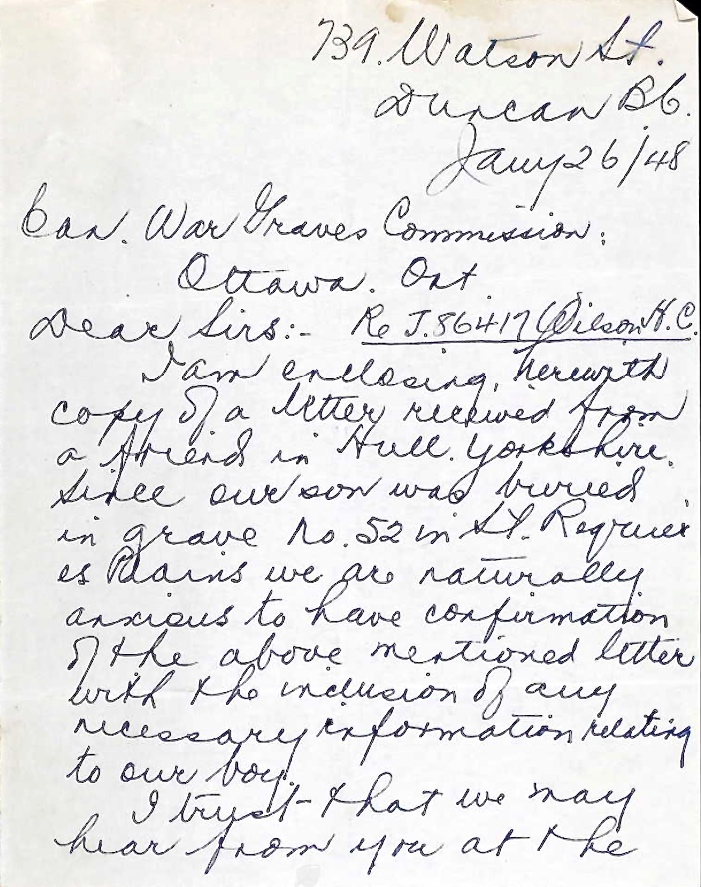 739. Watson St.
Duncan B.C.
Jany 26/48
Can. War Graves Commission:
Ottawa. Ont
Dear Sirs:- Re J.86417 Wilson H.C.
I am enclosing, herewith
copy of a letter received from
a friend in Hull. Yorkshire.
Since our son was buried
in grave No. 52 in St. Requier
es Plains we are naturally
anxious to have confirmation
of the above mentioned letter
with the inclusion of any
necessary information relating
to our boy.
I trust- that we may
hear from you at the